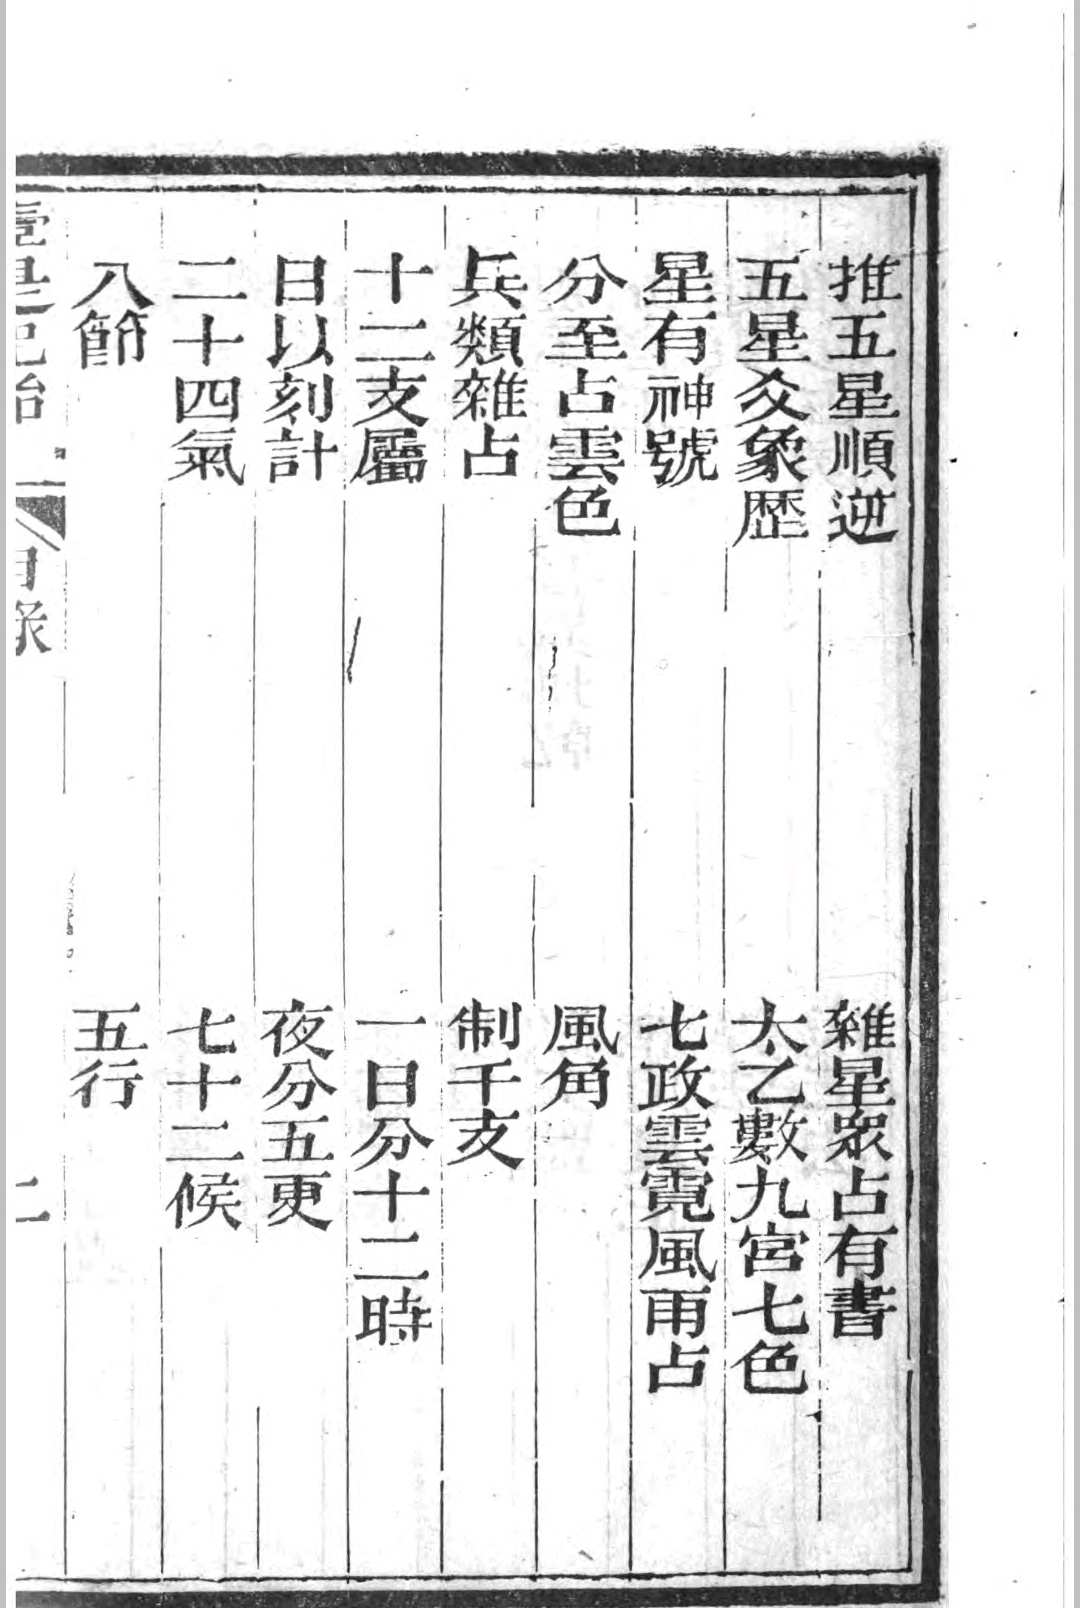 推五星順逆　雜星眾占有書
五星爻象歷　太乙數九宮七色
星有神號　七政雲霓風雨占
分至占雲色　風角
兵類雜占　制干支
十二支屬　一日分十二時
日以刻計　夜分五更
二十四氣　七十二候
八節　五行
壹是紀始　目录　二